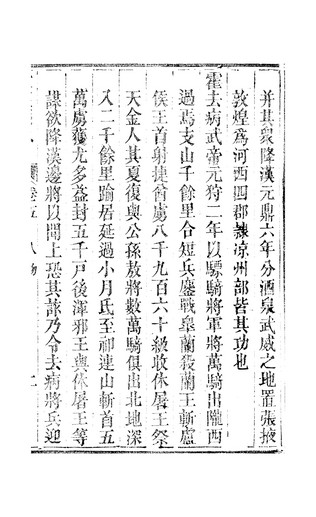 并其眾降漢元鼎六年分酒泉武威之地置張掖
敦煌爲河西四郡隸凉州部皆其功也
霍去病武帝元狩二年以驃騎將軍將萬騎出隴西
過焉支山千餘里合短兵鏖戰臯蘭殺蘭王斬盧
侯王首虜捷首虜八千九百六十級收休屠王祭
天金人其夏復與公孫敖將數萬騎俱出北地深
入二千餘里踰居延過小月氏至祁連山斬首五
萬虜獲尤多益封五千戶後渾邪王與休屠王等
謀欲降漢邊將以聞上恐其詐乃令去病將兵迎
卷五 人物